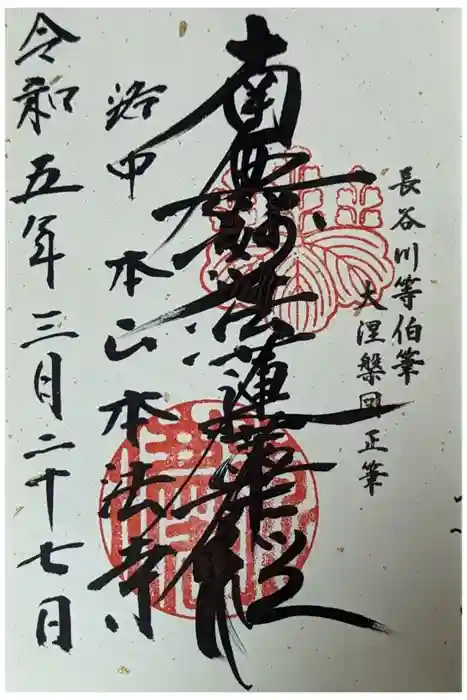 長谷川等伯筆
大涅槃図正筆
南無妙法蓮華経
洛中 本山 本法寺
令和五年三月二十七日